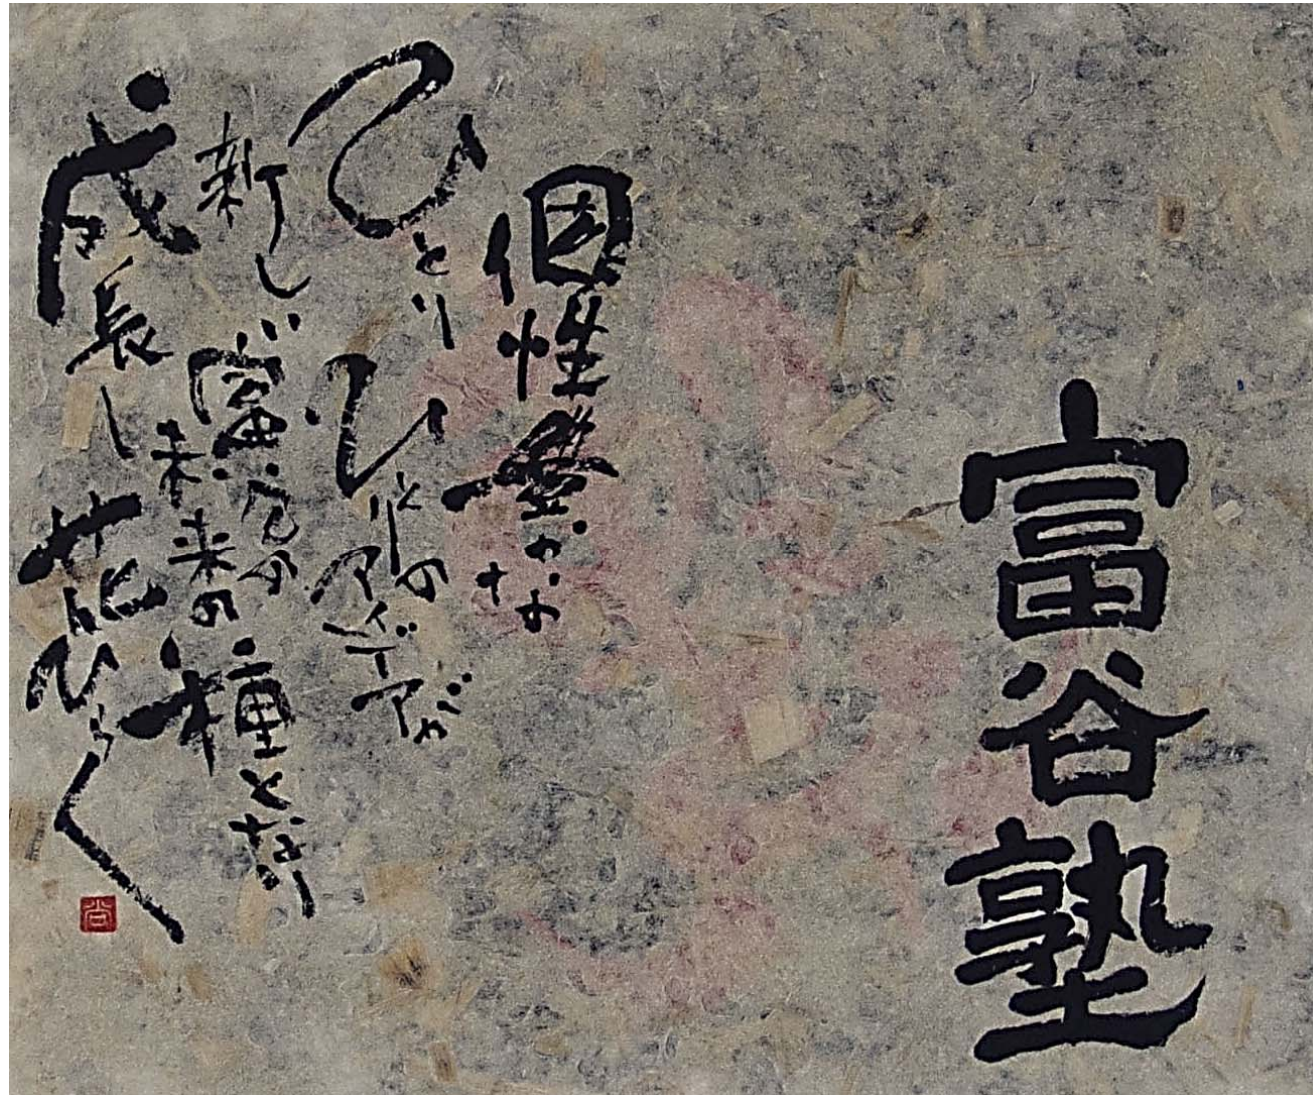 富谷塾
個性豊かな
ひとりひとりのアイデアが
新しい富谷の
未来の種となり
成長し花ひらく
尚